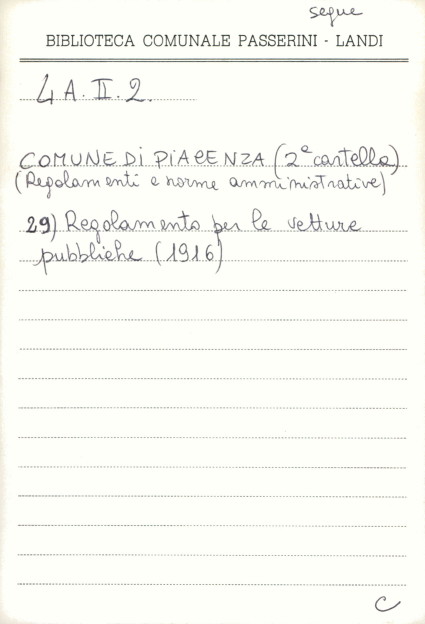 segue
BIBLIOTECA COMUNALE PASSERINI - LANDI
4 A. II. 2.
COMUNE DI PIACENZA (2ª cartella)
(Regolamenti e norme amministrative)
29) Regolamento per le vetture
pubbliche (1916)
C